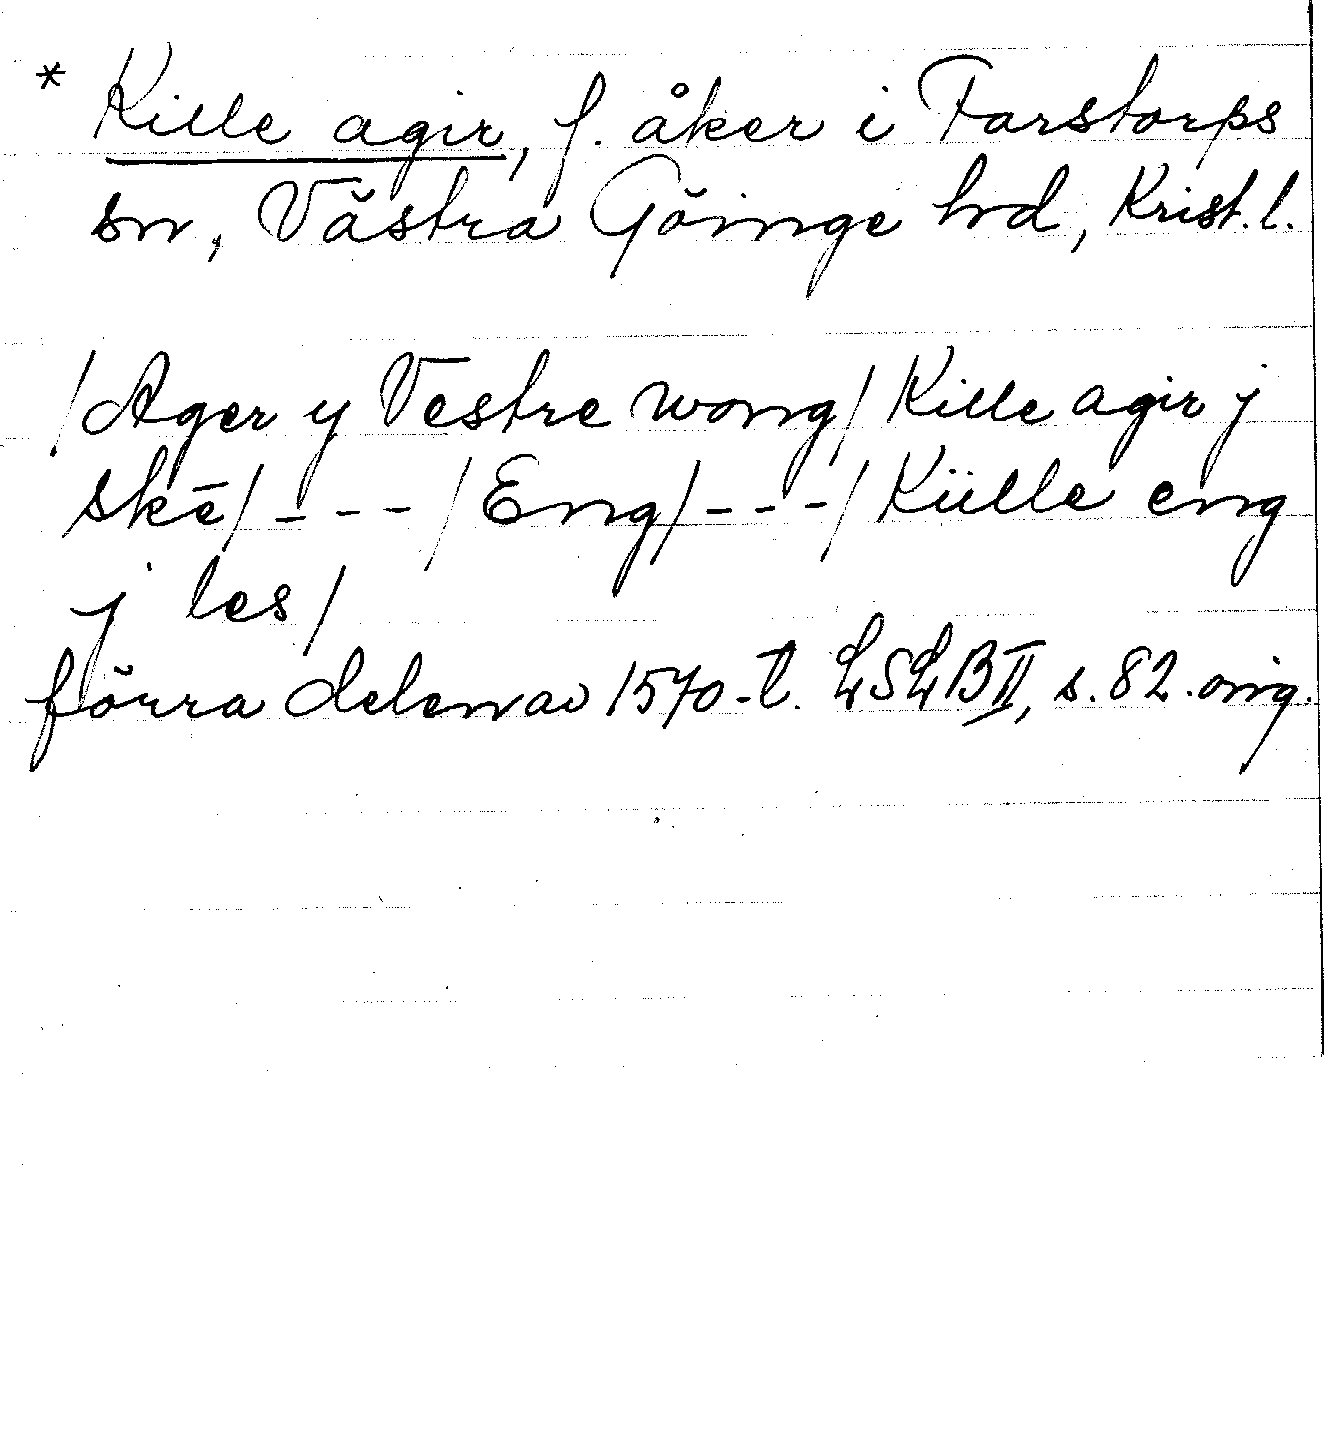 * Kille agir, f. åker i Farstorps
sn, Västra Göinge hd, Krist. l.
/Ager y Vestre wong/ Kille agir j
skē/ - - - /Eng/ - - - / Külle eng
j les/
förra delen av 1570-t. LSLB II, s. 82. orig.